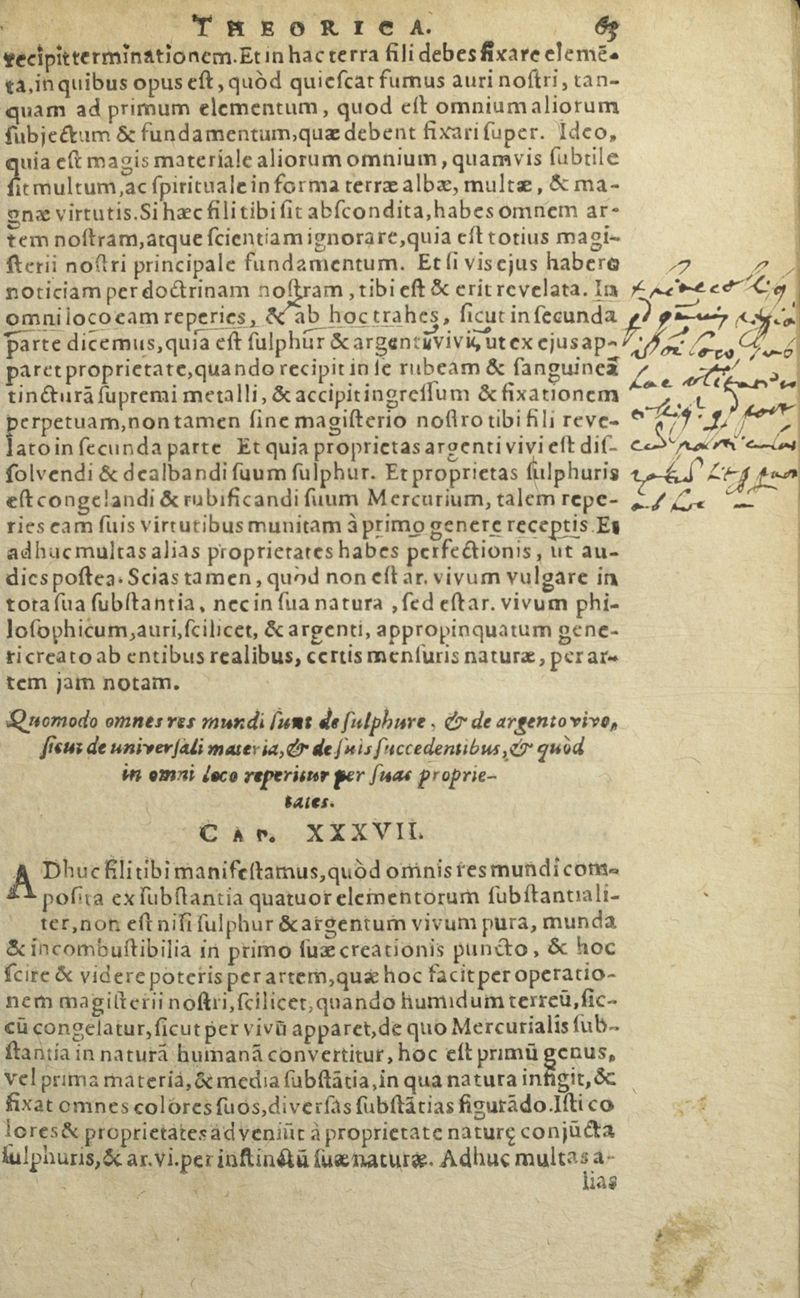 THEORICA. 65
recipit terminationem. Et in hac terra fili debes fixare elemē-
ta, in quibus opus est, quòd quiescat fumus auri nostri, tan-
quam ad primum elementum, quod est omnium aliorum
subjectum & fundamentum, quæ debent fixari super. Ideo,
quia est magis materiale aliorum omnium, quamvis subtile
sit multum, ac spirituale in forma terræ albæ, multæ, & ma-
gnæ virtutis. Si hæc fili tibi sit abscondita, habes omnem ar-
tem nostram, atque scientiam ignorare, quia est totius magi-
sterii nostri principale fundamentum. Et si vis ejus habere
noticiam per doctrinam nostram, tibi est & erit revelata. In
omni loco eam reperies, & ab hoc trahes, sicut in secunda
parte dicemus, quia est sulphur & argenti vivi, ut ex ejus ap-
paret proprietate, quando recipit in se rubeam & sanguineā
tincturā supremi metalli, & accipit ingressum & fixationem
perpetuam, non tamen sine magisterio nostro tibi fili reve-
lato in secunda parte Et quia proprietas argenti vivi est dis-
solvendi & dealbandi suum sulphur. Et proprietas sulphuris
est congelandi & rubificandi suum Mercurium, talem repe-
ries eam suis virtutibus munitam à primo genere receptis Et
adhuc multas alias proprietates habes perfectionis, ut au-
dies postea. Scias tamen, quòd non est ar. vivum vulgare in
tota sua substantia, nec in sua natura, sed est ar. vivum phi-
losophicum, auri, scilicet, & argenti, appropinquatum gene-
ri creato ab entibus realibus, certis mensuris naturæ, per ar-
tem jam notam.
Quomodo omnes res mundi sunt de sulphure, & de argento vivo,
sicut de universali materia, & de suis succedentibus, & quòd
in omni loco reperitur per suas proprie-
tates.
CAP. XXXVII.
ADhuc fili tibi manifestamus, quòd omnis res mundi com-
posita ex substantia quatuor elementorum substantiali-
ter, non est nisi sulphur & argentum vivum pura, munda
& incombustibilia in primo suæ creationis puncto, & hoc
scire & videre poteris per artem, quæ hoc facit per operatio-
nem magisterii nostri, scilicet, quando humidum terreū, sic-
cū congelatur, sicut per vivū apparet, de quo Mercurialis sub-
stantia in naturā humanā convertitur, hoc est primū genus,
vel prima materia, & media substātia, in qua natura infigit, &
fixat omnes colores suos, diversas substātias figurādo. Isti co
lores & proprietates adveniūt à proprietate naturę conjūcta
sulphuris, & ar. vi. per instinctū suæ naturæ. Adhuc multas a-
lias